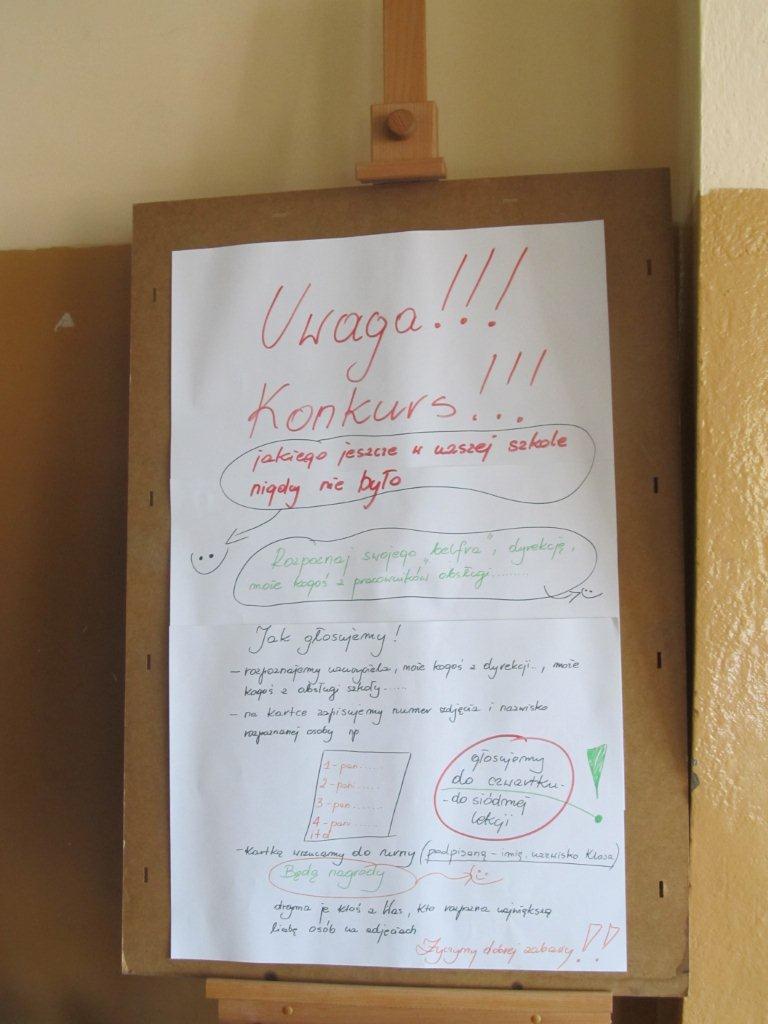 Uwaga!!!
Konkurs!!!
jakiego jeszcze w naszej szkole
nigdy nie było
Rozpoznaj swojego "belfra", dyrekcję,
może kogoś z pracowników obsługi.........
Jak głosujemy!
- rozpoznajemy nauczyciela, może kogoś z dyrekcji.., może
kogoś z obsługi szkoły......
- na kartce zapisujemy numer zdjęcia i nazwisko
rozpoznanej osoby np
1 - pan......
2 - pani......
3 - pan......
4 - pani.....
itd
głosujemy
do czwartku-
-do siódmej
lekcji
!
- Kartkę wrzucamy do urny (podpisaną - imię, nazwisko klasa)
Będą nagrody
otrzyma je ktoś z Was, kto rozpozna największą
liczbę osób na zdjęciach
Życzymy dobrej zabawy!!